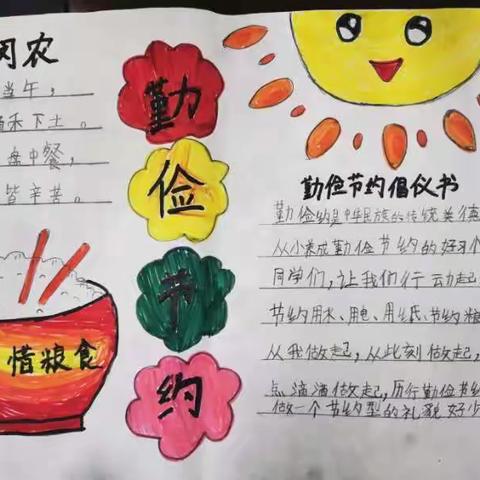 农
当午，
禾下土。
盘中餐，
皆辛苦。
惜粮食
勤
俭
节
约
勤俭节约倡仪书
勤俭约是中华民族的传统美德
从小养成勤俭节约的好习
同学们，让我们行动起
节约用水、用电、用纸、节约粮
从我做起，从此刻做起，
点滴滴做起，历行勤俭节约
做一个节约型的礼貌好少